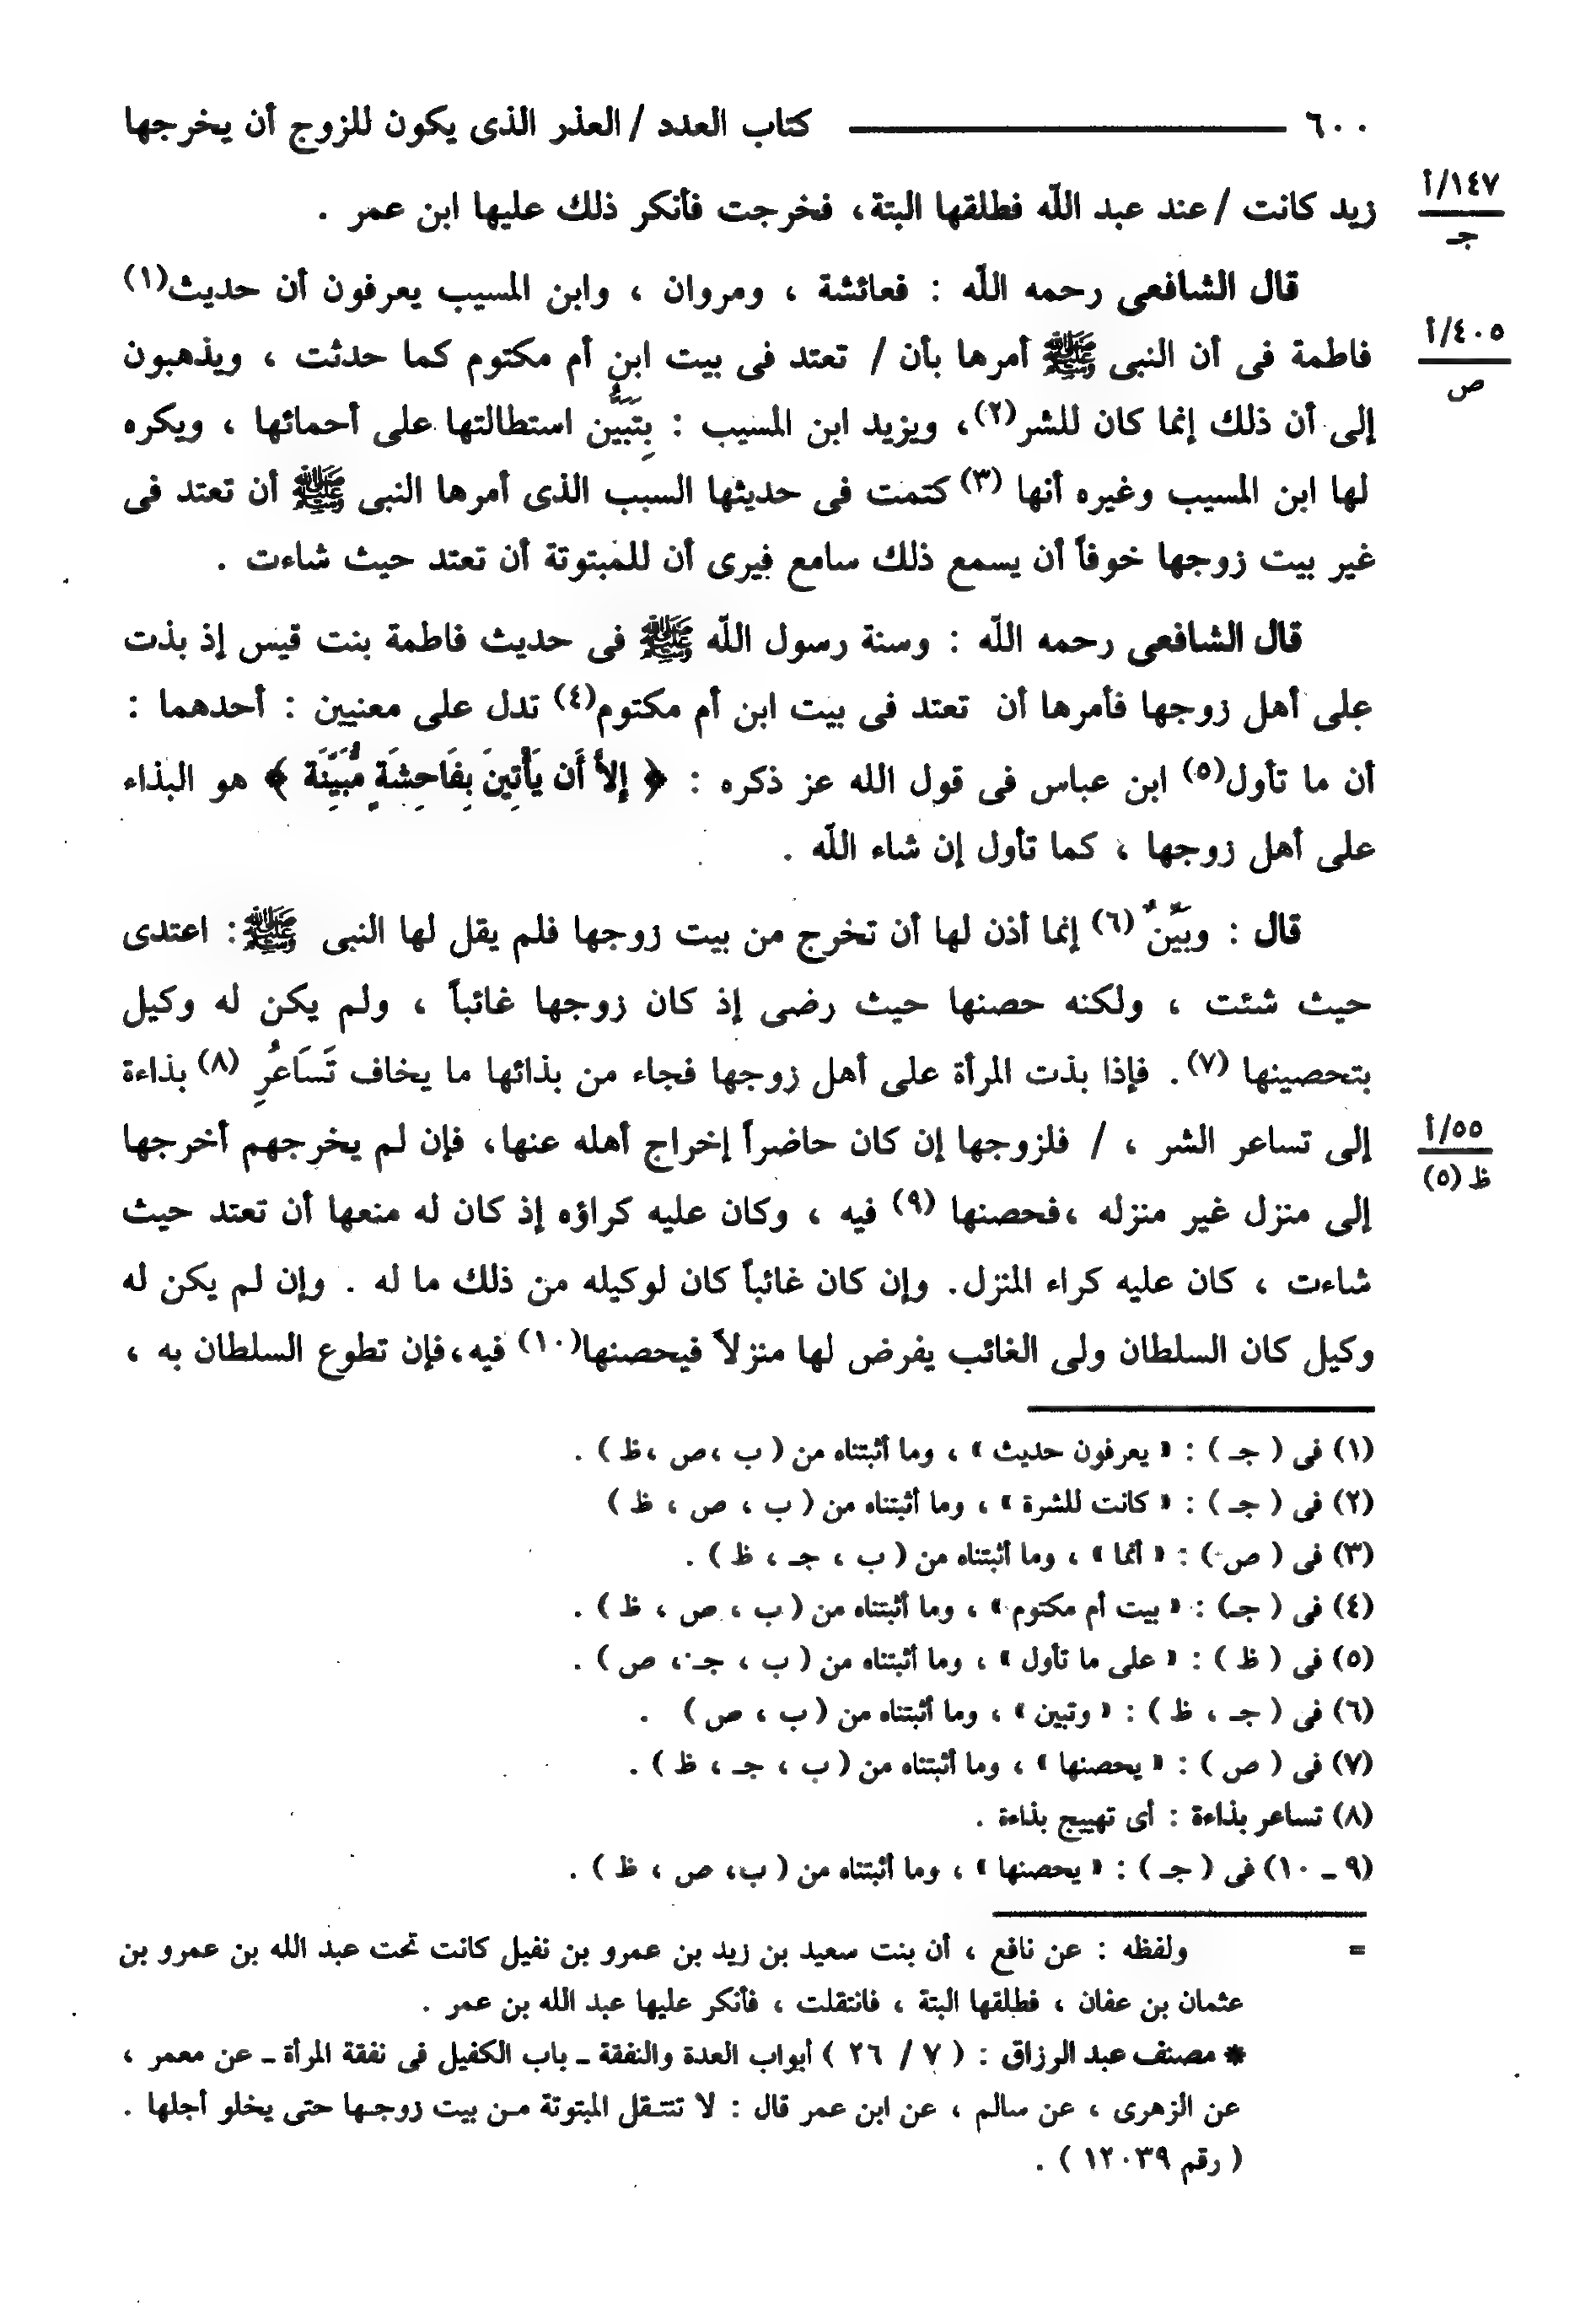 ٦٠٠ كتاب العدد / العذر الذى يكون للزوج أن يخرجها
١٤٧/أ
جـ
زيد كانت / عند عبد اللّه فطلقها البتة، فخرجت فأنكر ذلك عليها ابن عمر .
قال الشافعى رحمه اللّه : فعائشة ، ومروان ، وابن المسيب يعرفون أن حديث(١)
٤٠٥/أ
ص
فاطمة فى أن النبى ﷺ أمرها بأن / تعتد فى بيت ابن أم مكتوم كما حدثت ، ويذهبون
إلى أن ذلك إنما كان للشر(٢)، ويزيد ابن المسيب : بِتَبَيُّن استطالتها على أحمائها ، ويكره
لها ابن المسيب وغيره أنها (٣) كتمت فى حديثها السبب الذى أمرها النبى ﷺ أن تعتد فى
غير بيت زوجها خوفاً أن يسمع ذلك سامع فيرى أن للمبتوتة أن تعتد حيث شاءت .
قال الشافعى رحمه اللّه : وسنة رسول اللّه ﷺ فى حديث فاطمة بنت قيس إذ بذت
على أهل زوجها فأمرها أن تعتد فى بيت ابن أم مكتوم(٤) تدل على معنيين : أحدهما :
أن ما تأول(٥) ابن عباس فى قول الله عز ذكره : ﴿ إِلاَّ أَن يَأْتِينَ بِفَاحِشَةٍ مُّبَيِّنَة ﴾ هو البذاء
على أهل زوجها ، كما تأول إن شاء اللّه .
قال : وبَيِّنٌ (٦) إنما أذن لها أن تخرج من بيت زوجها فلم يقل لها النبى ﷺ: اعتدى
حيث شئت ، ولكنه حصنها حيث رضى إذ كان زوجها غائباً ، ولم يكن له وكيل
بتحصينها (٧). فإذا بذت المرأة على أهل زوجها فجاء من بذائها ما يخاف تَسَاعُرِ (٨) بذاءة
٥٥/أ
ظ (٥)
إلى تساعر الشر ، / فلزوجها إن كان حاضراً إخراج أهله عنها، فإن لم يخرجهم أخرجها
إلى منزل غير منزله ،فحصنها (٩) فيه ، وكان عليه كراؤه إذ كان له منعها أن تعتد حيث
شاءت ، كان عليه كراء المنزل. وإن كان غائباً كان لوكيله من ذلك ما له . وإن لم يكن له
وكيل كان السلطان ولى الغائب يفرض لها منزلاً فيحصنها(١٠) فيه،فإن تطوع السلطان به ،
(١) فى ( جـ ) : « يعرفون حديث » ، وما أثبتناه من ( ب ،ص ،ظ ) .
(٢) فى ( جـ ) : « كانت للشرة » ، وما أثبتناه من ( ب ، ص ، ظ )
(٣) فى ( ص ) : « أنما » ، وما أثبتناه من ( ب ، جـ ، ظ ) .
(٤) فى ( جـ) : « بيت أم مكتوم » ، وما أثبتناه من ( ب ، ص ، ظ ) .
(٥) فى ( ظ ) : « على ما تأول » ، وما أثبتناه من ( ب ، جـ ، ص ) .
(٦) فى ( جـ ، ظ ) : « وتبين » ، وما أثبتناه من ( ب ، ص ) .
(٧) فى ( ص ) : « يحصنها » ، وما أثبتناه من ( ب ، جـ ، ظ ) .
(٨) تساعر بذاءة : أى تهييج بذاءة .
(٩ ـ ١٠) فى ( جـ ) : « يحصنها » ، وما أثبتناه من ( ب، ص ، ظ ) .
= ولفظه : عن نافع ، أن بنت سعيد بن زيد بن عمرو بن نفيل كانت تحت عبد الله بن عمرو بن
عثمان بن عفان ، فطلقها البتة ، فانتقلت ، فأنكر عليها عبد الله بن عمر .
* مصنف عبد الرزاق : ( ٧ / ٢٦ ) أبواب العدة والنفقة ـ باب الكفيل فى نفقة المرأة ـ عن معمر ،
عن الزهرى ، عن سالم ، عن ابن عمر قال : لا تنتقل المبتوتة من بيت زوجها حتى يخلو أجلها .
( رقم ١٢٠٣٩ ) .